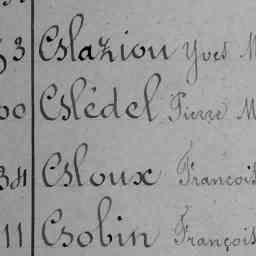 53 Cslazion Yves M
00 Cslédel Pierre M
34 Csloux François
11 Csobin François